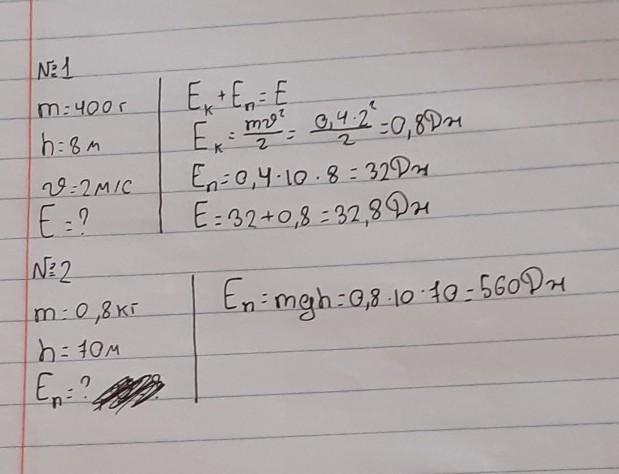 №1
m=400г
h=8м
υ=2м/с
E=?
Eк+Eп=E
Eк=mυ²/2=0,4·2²/2=0,8Дж
Eп=0,4·10·8=32Дж
E=32+0,8=32,8Дж
№2
m=0,8кг
h=70м
Eп=?
Eп=mgh=0,8·10·70=560Дж